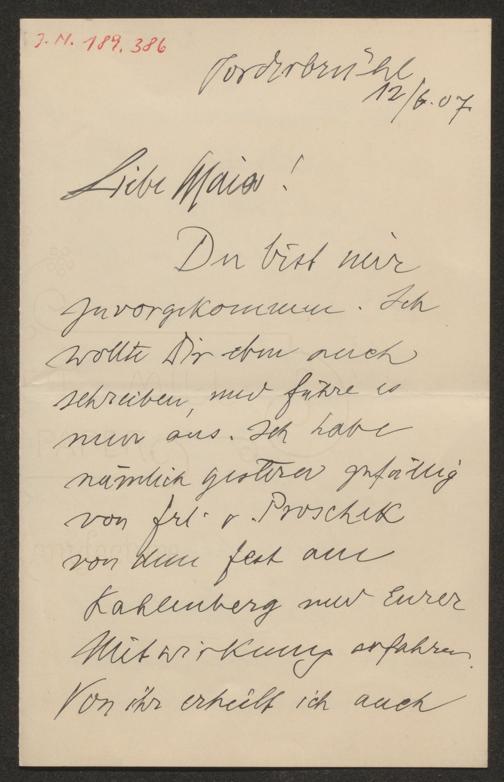 J.N. 189.386
Vorderbrühl
12/6.07
Liebe Maia!
Du bist mir
zuvorgekommen. Ich
wollte Dir eben auch
schreiben, und führe es
nun aus. Ich habe
nämlich gestern zufällig
von Frl. v. Proschek
von dem Fest am
Kahlenberg und Eurer
Mitwirkung erfahren.
Von ihr erhielt ich auch